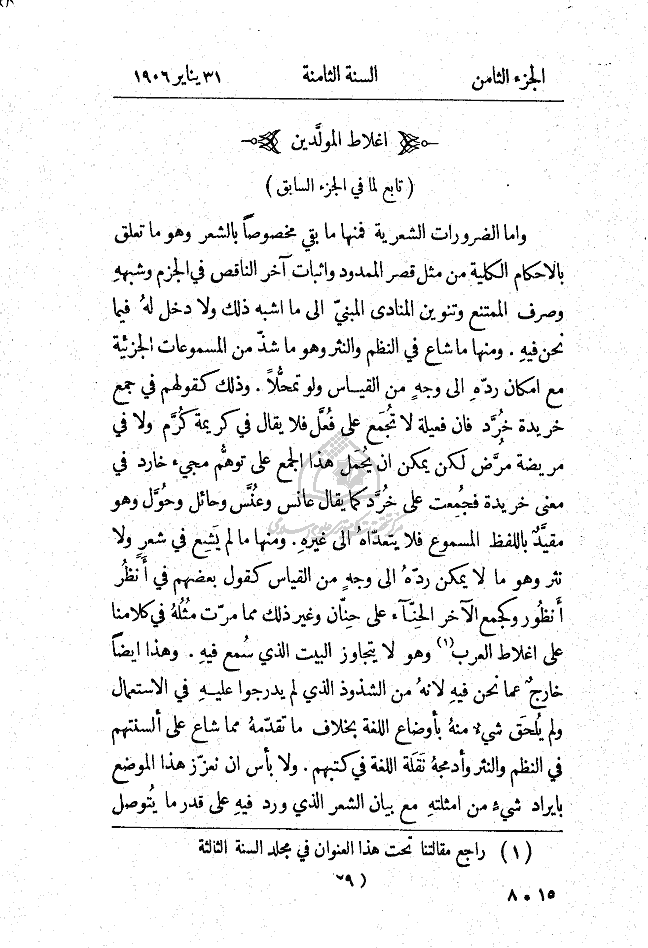 الجزء الثامن السنة الثامنة ٣١ يناير ١٩٠٦
اغلاط المولَّدين
( تابع لما في الجزء السابق )
واما الضرورات الشعرية فمنها ما بقي مخصوصاً بالشعر وهو ما تعلق
بالاحكام الكلية من مثل قصر الممدود واثبات آخر الناقص في الجزم وشبههِ
وصرف الممتنع وتنوين المنادى المبنيّ الى ما اشبه ذلك ولا دخل لهُ فيما
نحن فيهِ . ومنها ما شاع في النظم والنثر وهو ما شذّ من المسموعات الجزئية
مع امكان ردّهِ الى وجهٍ من القياس ولو تمحُّلاً . وذلك كقولهم في جمع
خريدة خُرَّد فان فعيلة لا تُجمَع على فُعَّل فلا يقال في كريمة كُرَّم ولا في
مريضة مُرَّض لكن يمكن ان يُحمَل هذا الجمع على توهُّم مجيء خارد في
معنى خريدة فجُمعت على خُرَّد كما يقال عانس وعُنَّس وحائل وحُوَّل وهو
مقيَّدٌ باللفظ المسموع فلا يتعدّاهُ الى غيرهِ . ومنها ما لم يَشِع في شعرٍ ولا
نثر وهو ما لا يمكن ردّهُ الى وجهٍ من القياس كقول بعضهم في أَنظُر
أَنظُور وكجمع الآخر الحِنّآء على حِنّان وغير ذلك مما مرّت مُثُلهُ في كلامنا
على اغلاط العرب(١) وهو لا يتجاوز البيت الذي سُمع فيهِ . وهذا ايضاً
خارجٌ عما نحن فيهِ لانهُ من الشذوذ الذي لم يدرجوا عليهِ في الاستعمال
ولم يُلحَق شيءٌ منهُ بأوضاع اللغة بخلاف ما تقدّمهُ مما شاع على ألسنتهم
في النظم والنثر وأدمجهُ نَقَلَة اللغة في كتبهم . ولا بأس ان نعزّز هذا الموضع
بايراد شيءٍ من امثلتهِ مع بيان الشعر الذي ورد فيهِ على قدر ما يُتوصل
( ١ ) راجع مقالتنا تحت هذا العنوان في مجلد السنة الثالثة
(٢٩)
٨٠١٥